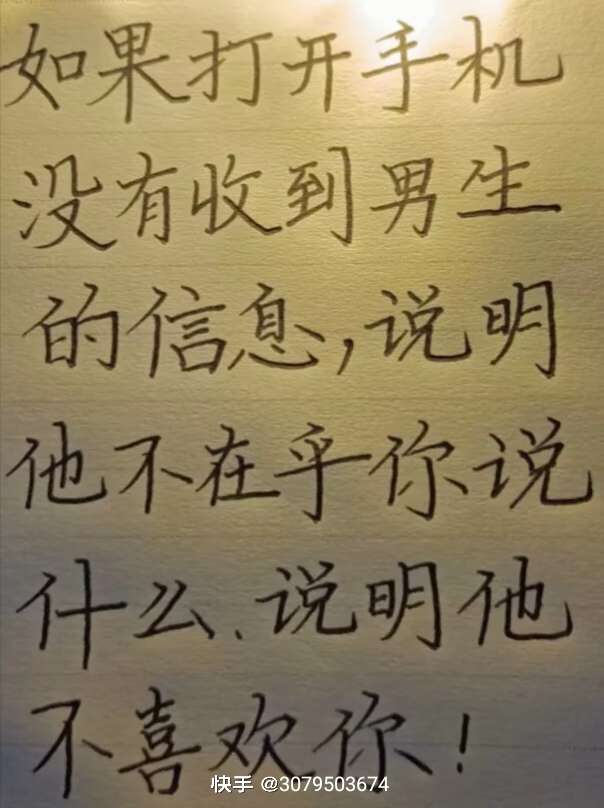 如果打开手机
没有收到男生
的信息,说明
他不在乎你说
什么、说明他
不喜欢你!
快手 @3079503674